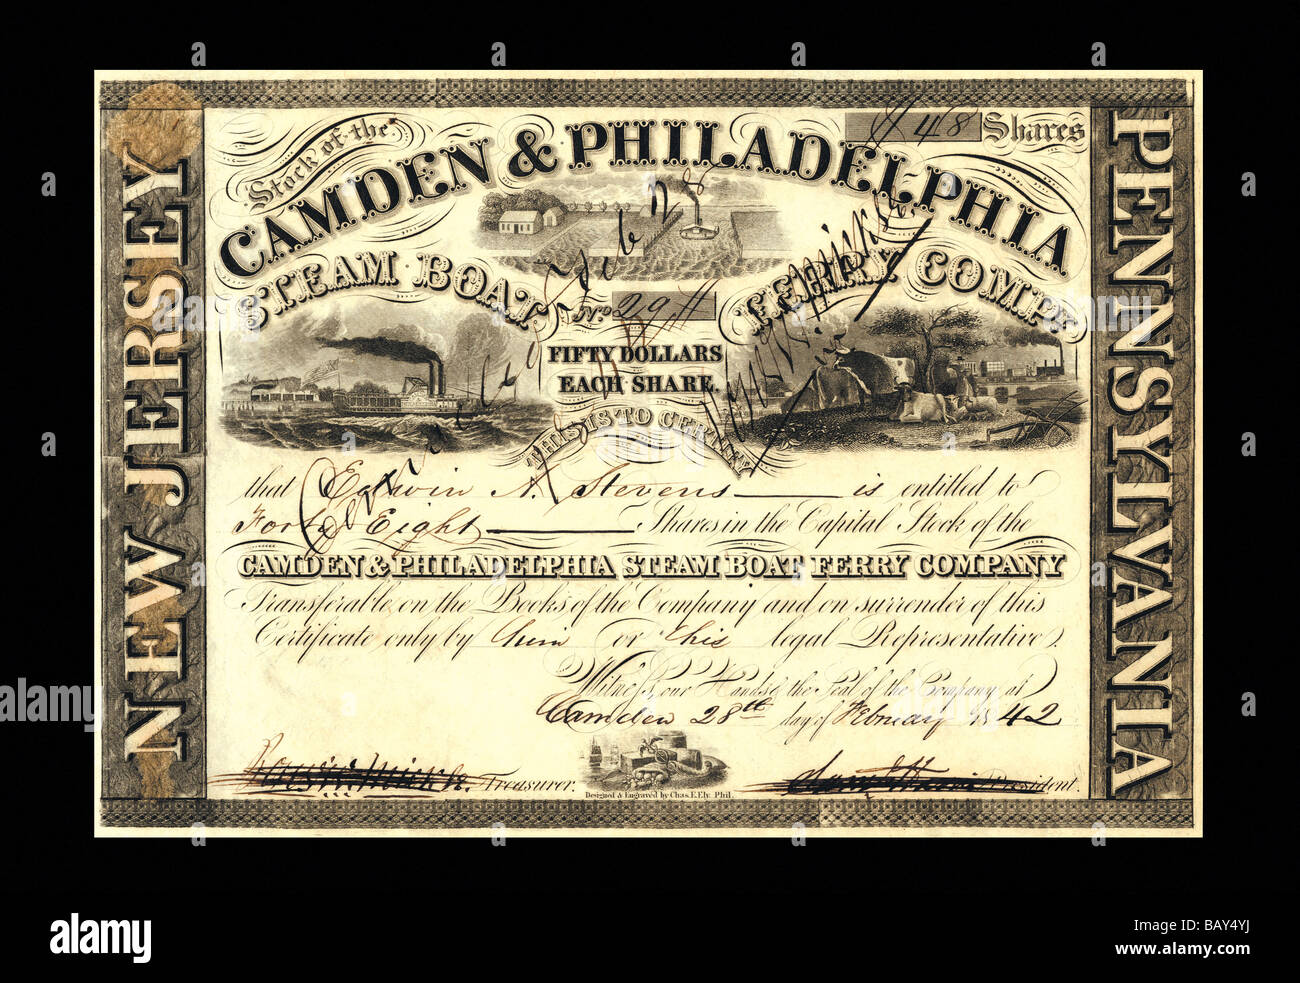 Stock of the
48 Shares
CAMDEN & PHILADELPHIA
STEAM BOAT FERRY COMPY
No. 29
FIFTY DOLLARS
EACH SHARE.
THIS IS TO CERTIFY
that Edwin A. Stevens is entitled to
Forty Eight Shares in the Capital Stock of the
CAMDEN & PHILADELPHIA STEAM BOAT FERRY COMPANY
Transferable on the Books of the Company and on surrender of this
Certificate only by him or his legal Representative.
Witness our Hands & the Seal of the Company at
Camden 28th day of February 1842
Treasurer. President.
Designed & Engraved by Chas. E. Ely. Phil.
NEW JERSEY
PENNSYLVANIA
Cancelled Feb 28
alamy
alamy
Image ID: BAY4YJ
www.alamy.com